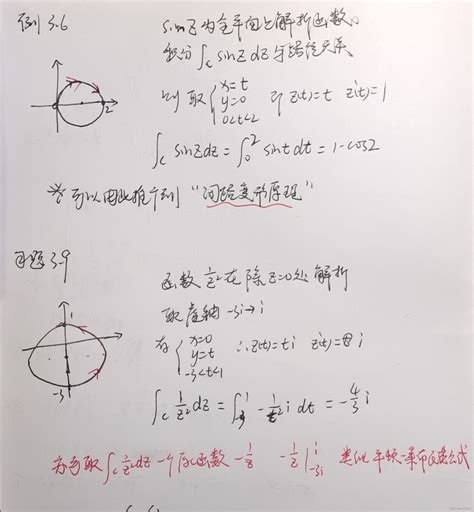 例 3.6
sinz 为全平面上解析函数。
积分 ∫_c sinz dz 与路径无关
则 取 { x=t y=0 0<t<2 即 z(t)=t z'(t)=1
2
∫_c sinz dz = ∫_0^2 sint dt = 1-cos2
* 可以由此推广到 "闭路变形原理"
习题 3-9
函数 1/z² 在 除 z=0 处 解析
取 虚轴 -3i→i
1
有 { x=0 y=t -3<t<1 ∴z(t)=ti z'(t)= i
-3
∫_c 1/z² dz = ∫ - 1/t² i dt = -4/3 i
亦可取 ∫_c 1/z² dz 一个原函数 -1/z -1/z |_{-3i}^{i} 类似 牛顿-莱布尼兹公式